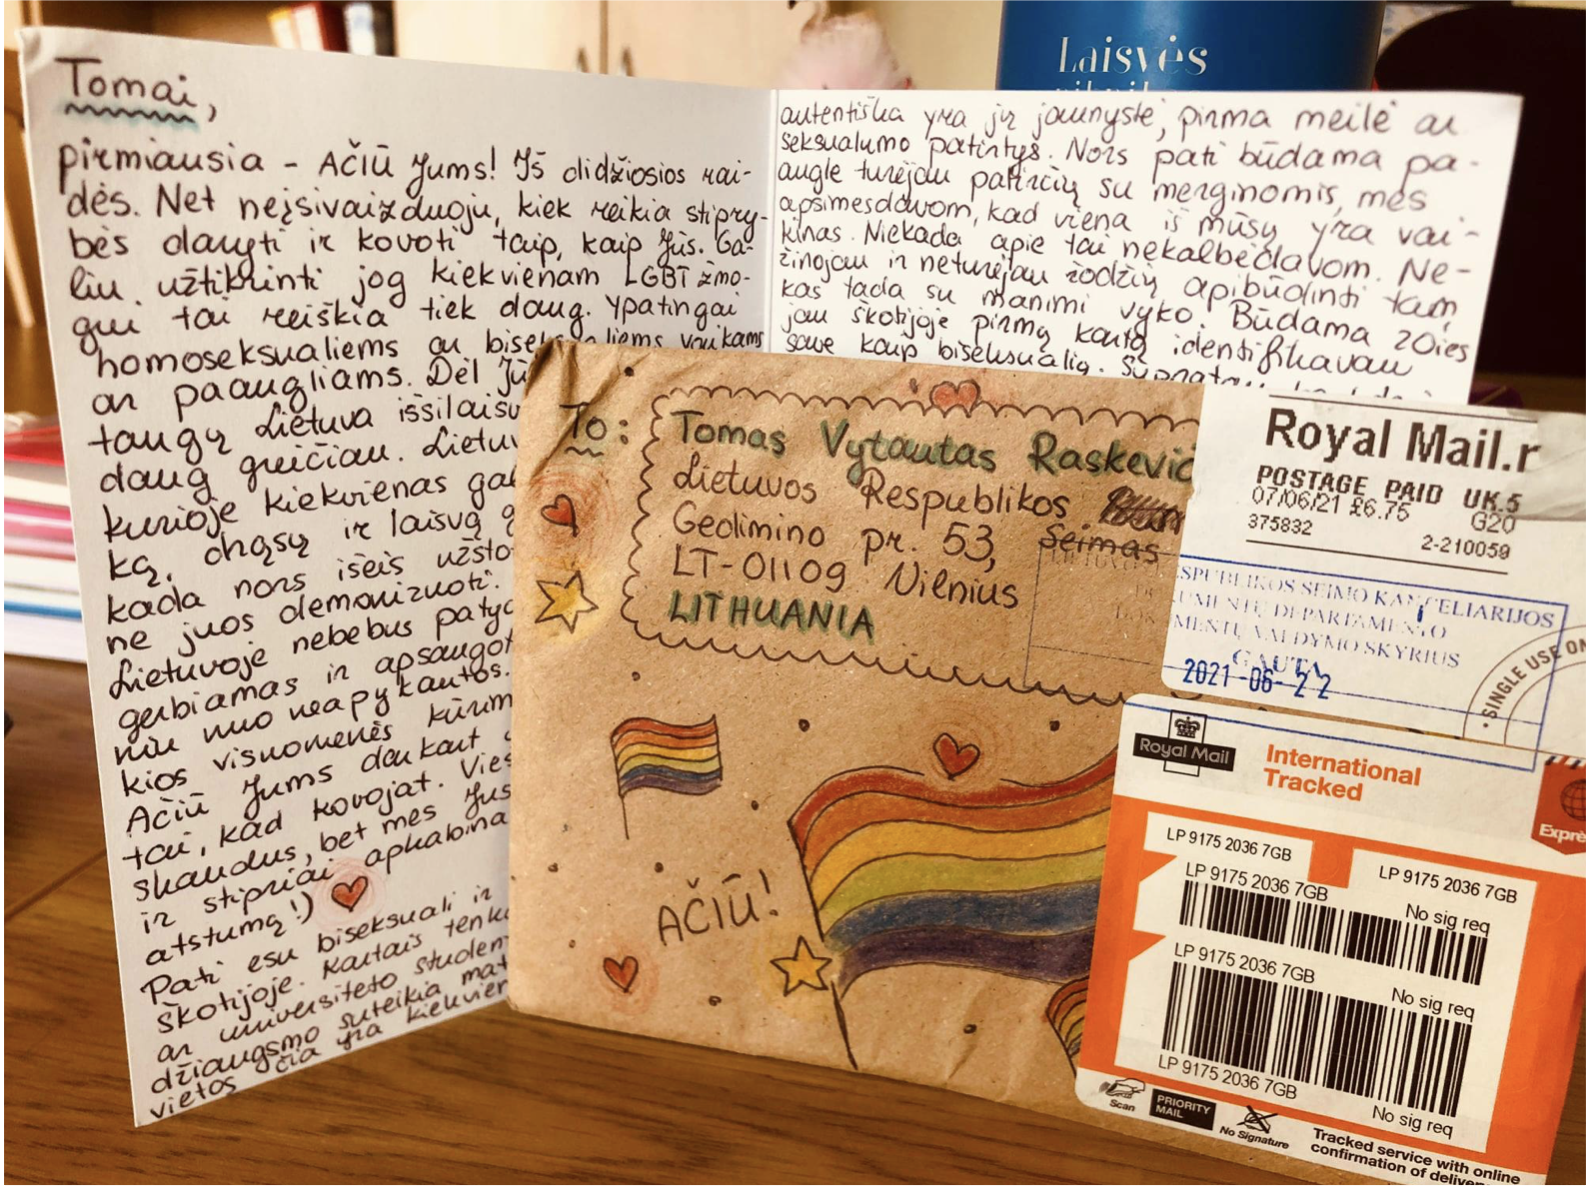 Laisvės
Tomai,
pirmiausia - AČIŪ Jums! Iš didžiosios rai-
dės. Net neįsivaizduoju, kiek reikia stipry-
bės daryti ir kovoti taip, kaip Jūs. Ga-
liu užtikrinti jog kiekvienam LGBT žmo-
gui tai reiškia tiek daug. Ypatingai
homoseksualiems ar biseksualiems vaikams
ar paaugliams. Dėl Jū
taugų Lietuva išsilaisv
daug greičiau. Lietuv
kurioje kiekvienas gal
ką, drąsų ir laisvą g
kada nors išeis užsto
ne juos demonizuoti.
Lietuvoje nebebus patyč
gerbiamas ir apsaugot
niu nuo neapykantos.
kios visuomenės kūrim
Ačiū Jums dar kart
tai, kad kovojat. Vies
skaudus, bet mes Jus
ir stipriai apkabina
atstumą!)
Pati esu biseksuali ir
Škotijoje. Kartais tenka
ar universiteto studen
džiaugsmo suteikia mat
vietos čia yra kiekvien
autentiška yra jų jaunystė, pirma meilė ar
seksualumo patirtys. Nors pati būdama pa-
augle turėjau patirčių su merginomis, mes
apsimesdavom, kad viena iš mūsų yra vai-
kinas. Niekada apie tai nekalbėdavom. Ne-
žinojau ir neturėjau žodžių apibūdinti tam
kas tada su manimi vyko. Būdama 20ies
jau Škotijoje pirmą kartą identifikavau
save kaip biseksualią. Supratau
To:
Tomas Vytautas Raskevič
Lietuvos Respublikos
Seimas
Gedimino pr. 53,
LT-01109 Vilnius
LITHUANIA
AČIŪ!
Royal Mail.r
POSTAGE PAID UK.5
07/06/21 £6.75 G20
375832 2-210059
ESPUBLIKOS SEIMO KANCELIARIJOS
UMENTŲ DEPARTAMENTO
MENTŲ VALDYMO SKYRIUS
GAUTA
2021-06-22
SINGLE USE ON
Royal Mail
International
Tracked
Expre
LP 9175 2036 7GB
LP 9175 2036 7GB
LP 9175 2036 7GB
No sig req
LP 9175 2036 7GB
No sig req
LP 9175 2036 7GB
No sig req
Scan
PRIORITY
MAIL
No Signature
Tracked service with online
confirmation of delive